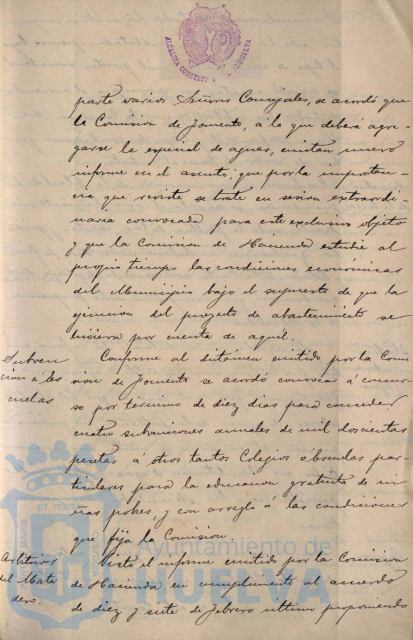 ALCALDIA CONSTITUCIONAL HUELVA
parte varios Señores Concejales, se acordó que
la Comision de Fomento, a la que deberá agre-
garse la especial de aguas, emitan nuevo
informe en el asunto; que por la importan-
cia que reviste se trate en sesion extraordi-
naria convocada para este exclusivo objeto
y que la Comision de Hacienda estudie al
propio tiempo las condiciones economicas
del Municipio bajo el supuesto de que la
ejecucion del proyecto de abastecimiento se
hiciera por cuenta de aquél.
Subven
cion a las
escuelas
Conforme al dictámen emitido por la Comi
sion de Fomento se acordó convocar á concur
so por término de diez dias para conceder
cuatro subvenciones anuales de mil doscientas
pesetas á otros tantos Colegios ó Escuelas par-
ticulares para la educacion gratuita de ni
ñas pobres, y con arreglo á las condiciones
que fija la Comision.
Arbitrios
del Mata
dero.
Visto el informe emitido por la Comision
de Hacienda en cumplimiento al acuerdo
de diez y siete de Febrero ultimo proponiendo
Ayuntamiento de
HUELVA